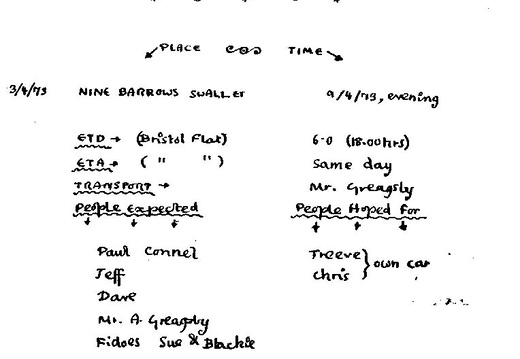 PLACE TIME
3/4/73 NINE BARROWS SWALLET 9/4/73, evening
ETD → (Bristol Flat) 6-0 (18.00hrs)
ETA → ( " " ) Same day
TRANSPORT → Mr. Greagsby
People Expected People Hoped For
Paul Connel Treeve } own car
Jeff Chris
Dave
Mr. A. Greagsby
Fidoes Sue & Blackie